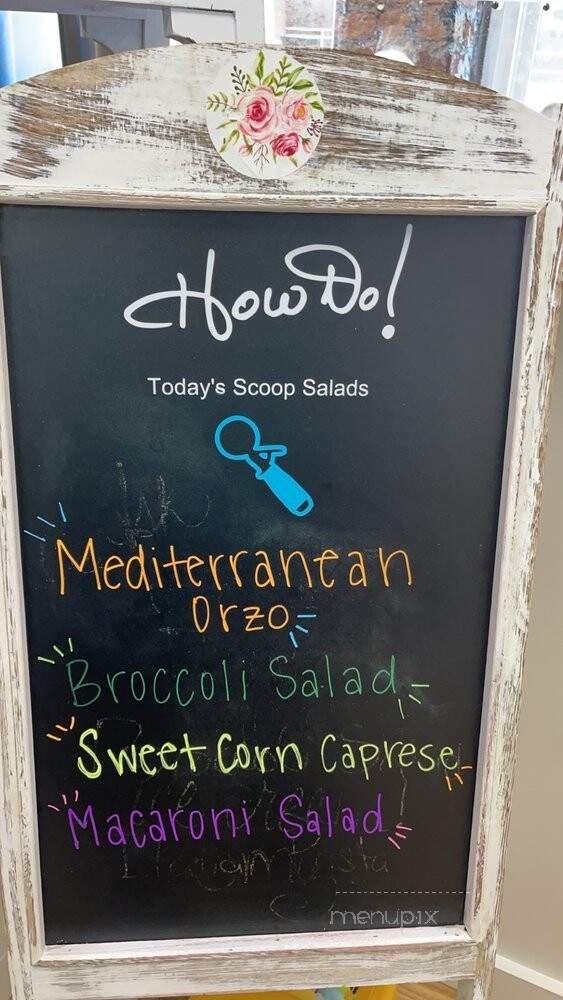 How Do!
Today's Scoop Salads
Mediterranean
Orzo
Broccoli Salad
Sweet Corn Caprese
Macaroni Salad
menupix